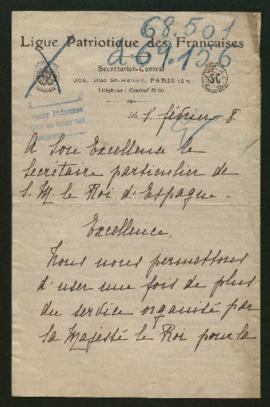 68.501
a 69.156
Ligue Patriotique des Françaises
Secrétariat-Central
368, Rue St-Honoré, PARIS (1er)
(Téléphone : Central
SC
Pedir Informes
1 février 8.
A Son Excellence le
Secrétaire particulier de
S. M. le Roi d'Espagne.
Excellence,
Nous nous permettons
d'user une fois de plus
du service organisé par
Sa Majesté le Roi pour la